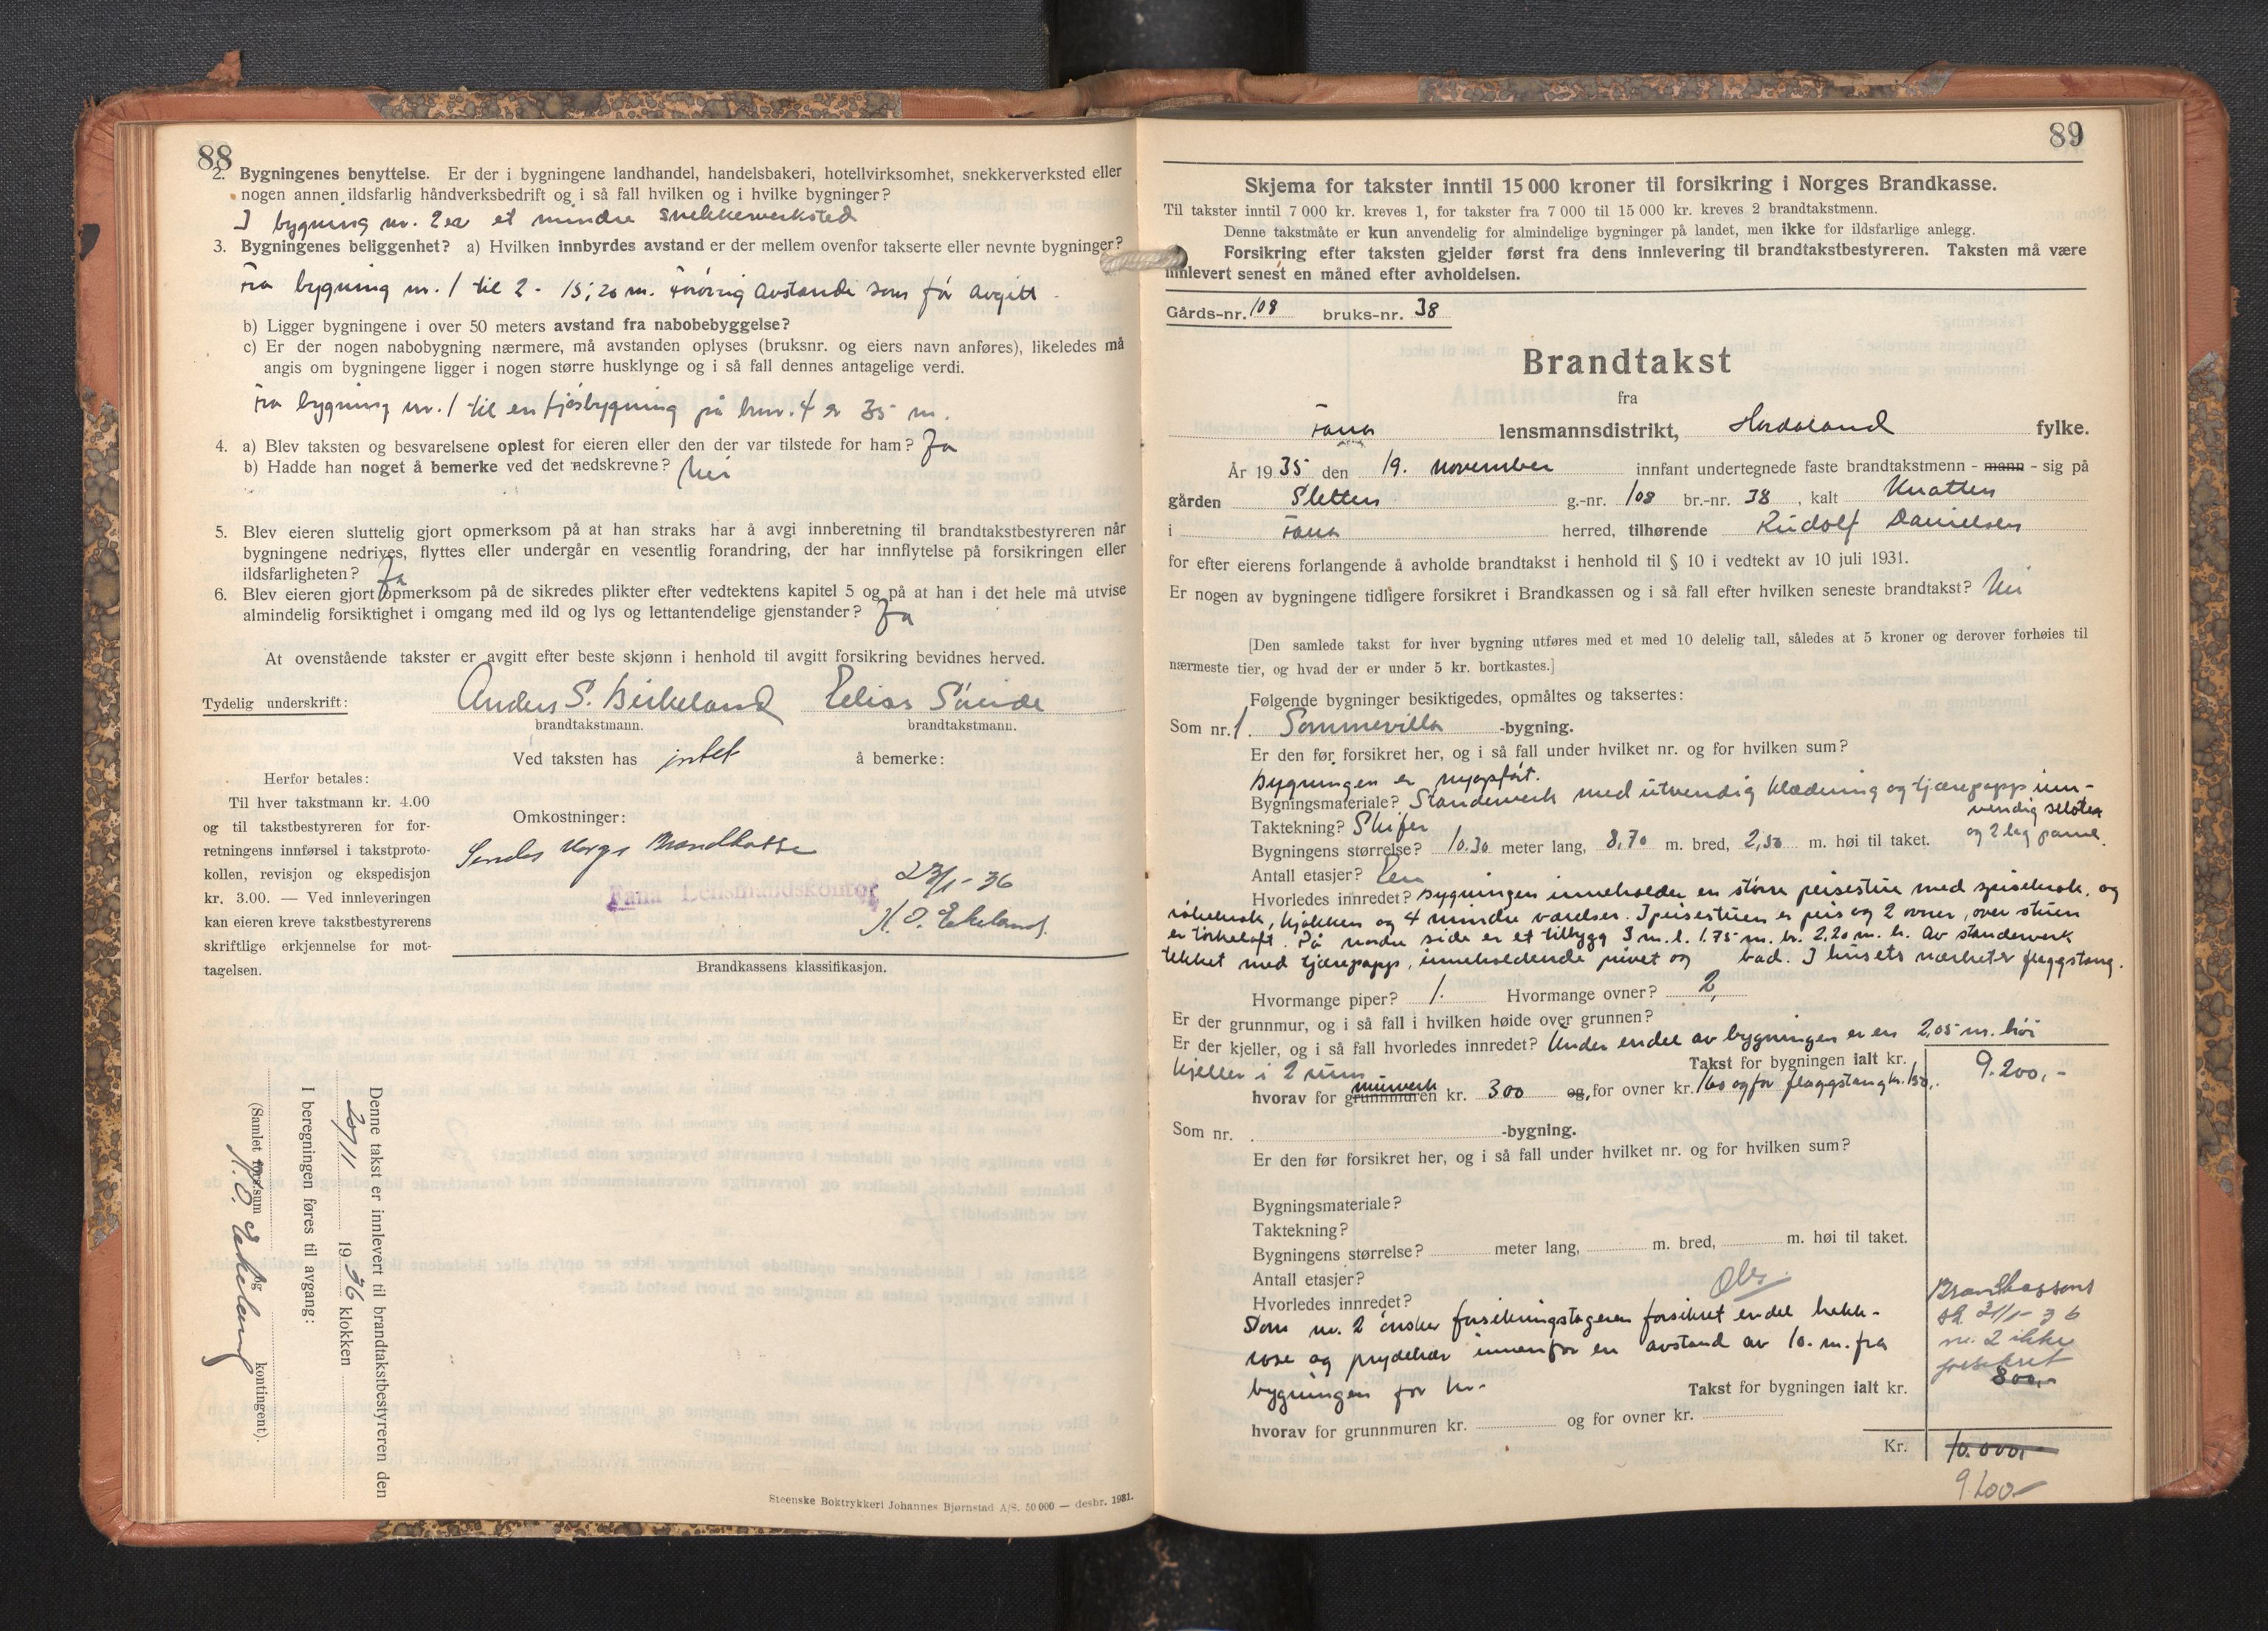 88
2. Bygningenes benyttelse. Er der i bygningene landhandel, handelsbakeri, hotellvirksomhet, snekkerverksted eller
nogen annen ildsfarlig håndverksbedrift og i så fall hvilken og i hvilke bygninger?
I bygning nr. 2 er et mindre snekkerverksted
3. Bygningenes beliggenhet? a) Hvilken innbyrdes avstand er der mellem ovenfor takserte eller nevnte bygninger?
Fra bygning nr. 1 til 2 - 15,20 m. Forøvrig avstande som før avgitt.
b) Ligger bygningene i over 50 meters avstand fra nabobebyggelse?
c) Er der nogen nabobygning nærmere, må avstanden oplyses (bruksnr. og eiers navn anføres), likeledes må
angis om bygningene ligger i nogen større husklynge og i så fall dennes antagelige verdi.
Fra bygning nr. 1 til en fjøsbygning på bnr. 4 er 35 m.
4. a) Blev taksten og besvarelsene oplest for eieren eller den der var tilstede for ham? Ja
b) Hadde han noget å bemerke ved det nedskrevne? Nei
5. Blev eieren sluttelig gjort opmerksom på at han straks har å avgi innberetning til brandtakstbestyreren når
bygningene nedrives, flyttes eller undergår en vesentlig forandring, der har innflytelse på forsikringen eller
ildsfarligheten? Ja
6. Blev eieren gjort opmerksom på de sikredes plikter efter vedtektens kapitel 5 og på at han i det hele må utvise
almindelig forsiktighet i omgang med ild og lys og lettantendelige gjenstander? Ja
At ovenstående takster er avgitt efter beste skjønn i henhold til avgitt forsikring bevidnes herved.
Tydelig underskrift: Anders S. Birkeland Elias Søvide
brandtakstmann. brandtakstmann.
Ved taksten has intet å bemerke:
Herfor betales:
Til hver takstmann kr. 4.00
og til takstbestyreren for for-
retningens innførsel i takstproto-
kollen, revisjon og ekspedisjon
kr. 3.00. — Ved innleveringen
kan eieren kreve takstbestyrerens
skriftlige erkjennelse for mot-
tagelsen.
Omkostninger:
Sendes Norges Brandkasse
Fana Lensmandskontor
23/1-36
N. O. Eikeland.
Brandkassens klassifikasjon.
Denne takst er innlevert til brandtakstbestyreren den
20/11 1936 klokken
I beregningen føres til avgang:
(Samlet fors.sum og kontingent).
N. O. Eikeland
Steenske Boktrykkeri Johannes Bjørnstad A/S. 50 000 — desbr. 1931.
89
Skjema for takster inntil 15 000 kroner til forsikring i Norges Brandkasse.
Til takster inntil 7 000 kr. kreves 1, for takster fra 7 000 til 15 000 kr. kreves 2 brandtakstmenn.
Denne takstmåte er kun anvendelig for almindelige bygninger på landet, men ikke for ildsfarlige anlegg.
Forsikring efter taksten gjelder først fra dens innlevering til brandtakstbestyreren. Taksten må være
innlevert senest en måned efter avholdelsen.
Gårds-nr. 108 bruks-nr. 38
Brandtakst
fra
Fana lensmannsdistrikt, Hordaland fylke.
År 1935 den 19. november innfant undertegnede faste brandtakstmenn - mann - sig på
gården Sletten g.-nr. 108 br.-nr. 38, kalt Knatten
i Fana herred, tilhørende Rudolf Danielsen
for efter eierens forlangende å avholde brandtakst i henhold til § 10 i vedtekt av 10 juli 1931.
Er nogen av bygningene tidligere forsikret i Brandkassen og i så fall efter hvilken seneste brandtakst? Nei
[Den samlede takst for hver bygning utføres med et med 10 delelig tall, således at 5 kroner og derover forhøies til
nærmeste tier, og hvad der er under 5 kr. bortkastes.]
Følgende bygninger besiktigedes, opmåltes og taksertes:
Som nr. 1. Sommervilla -bygning.
Er den før forsikret her, og i så fall under hvilket nr. og for hvilken sum?
Bygningen er nyopført.
Bygningsmateriale? Standerverk med utvendig klædning og tjærepapp inn-
vendig
og 2 lag panel.
Taktekning? Skifer
Bygningens størrelse? 10.30 meter lang, 8,70 m. bred, 2,50 m. høi til taket.
Antall etasjer? En
Hvorledes innredet? Bygningen inneholder en større peisestue med spisekrok, og
røkekrok, kjøkken og 4 mindre værelser. I peisestuen er peis og 2 ovner, over stuen
er tørkeloft. På nordre side er et tilbygg 3 m. l. 1.75 m. br. 2,20 m. h. av standerverk
tekket med tjærepapp, inneholdende privet og bad. I husets nærhet er flaggstang.
Hvormange piper? 1. Hvormange ovner? 2,
Er der grunnmur, og i så fall i hvilken høide over grunnen?
Er der kjeller, og i så fall hvorledes innredet? Under endel av bygningen er en 2,05 m. høi
kjeller i 2 rum
Takst for bygningen ialt kr. 9.200,-
hvorav for grunnmuren murverk kr. 300 og, for ovner kr. 160 og for flaggstang kr. 150,.
Som nr. -bygning.
Er den før forsikret her, og i så fall under hvilket nr. og for hvilken sum?
Bygningsmateriale?
Taktekning?
Bygningens størrelse? meter lang, m. bred, m. høi til taket.
Antall etasjer?
Obs.
Hvorledes innredet?
Som nr. 2 ønsker forsikringstageren forsikret endel hekk-
rose og prydebær innenfor en avstand av 10. m. fra
bygningen for kr.
Brandkassens
sk 31/1-36
nr. 2 ikke
forsikret
800,-
Takst for bygningen ialt kr.
hvorav for grunnmuren kr. og for ovner kr.
Kr. 10.000,-
9.200-